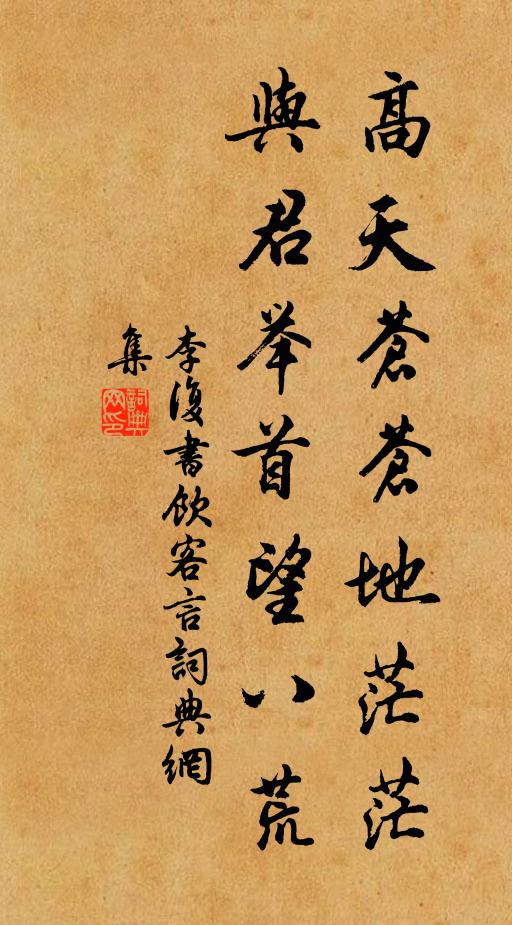 高天蒼蒼地茫茫
與君举首望八荒
李復書飲客言詞典網
集
詞典
网印